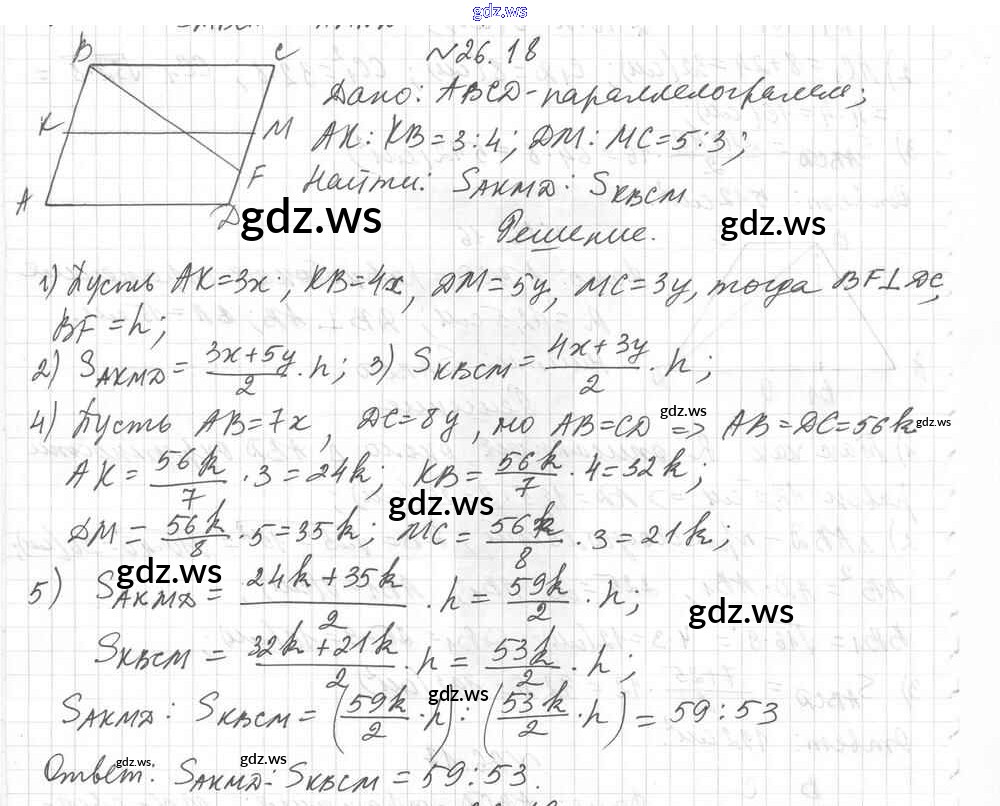 gdz.ws
№26.18
B C
K M
F
A D
Дано: ABCD-параллелограмм;
AK:KB=3:4; DM:MC=5:3;
Найти: SAKMD : SKBCM
gdz.ws
gdz.ws
Решение.
1) Пусть AK=3x; KB=4x, DM=5y, MC=3y, тогда BF⊥DC,
BF=h;
2) SAKMD = (3x+5y)/2 · h; 3) SKBCM = (4x+3y)/2 · h;
4) Пусть AB=7x, DC=8y, но AB=CD => AB=DC=56k
gdz.ws
gdz.ws
AK = 56k/7 · 3=24k; KB = 56k/7 · 4=32k;
gdz.ws
DM = 56k/8 · 5=35k; MC = 56k/8 · 3=21k;
gdz.ws
5) SAKMD = (24k+35k)/2 · h = 59k/2 · h;
gdz.ws
SKBCM = (32k+21k)/2 · h = 53k/2 · h;
gdz.ws
SAKMD : SKBCM = (59k/2 · h) : (53k/2 · h) = 59:53
gdz.ws
gdz.ws
Ответ: SAKMD : SKBCM = 59:53.